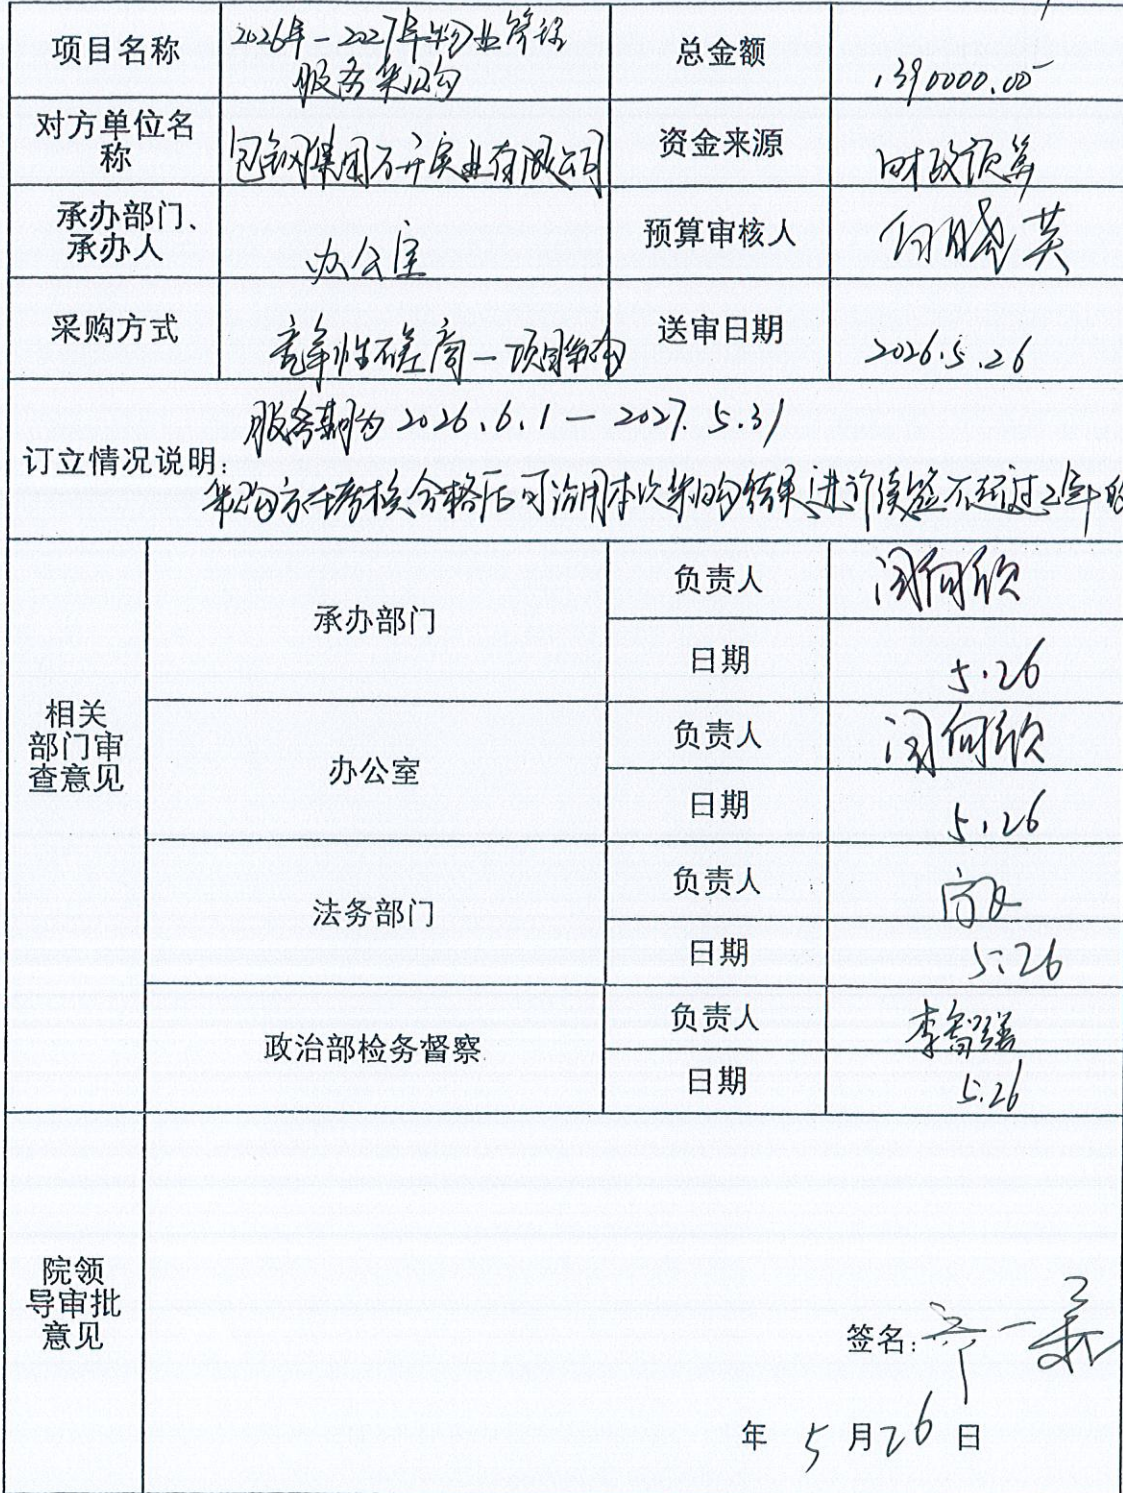 项目名称
2026年-2027年物业管理
服务采购
总金额
1390000.00
对方单位名
称
包钢集团万开实业有限公司
资金来源
财政预算
承办部门、
承办人
办公室
预算审核人
采购方式
竞争性磋商-项目采购
送审日期
2026.5.26
服务期为2026.6.1-2027.5.31
订立情况说明:
采购方在考核合格后可沿用本次采购结果进行续签不超过2年的
相关
部门审
查意见
承办部门
负责人
日期
5.26
办公室
负责人
日期
5.26
法务部门
负责人
日期
5.26
政治部检务督察
负责人
李智强
日期
5.26
院领
导审批
意见
签名:
年 5月26日